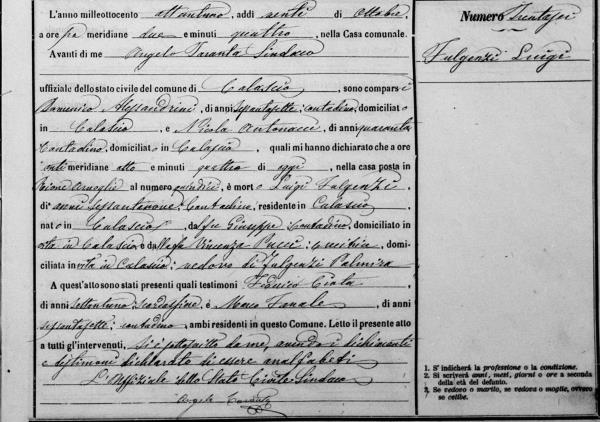 L'anno milleottocento ottantuno, addì venti di Ottobre,
a ore pomeridiane due e minuti quattro, nella Casa comunale.
Avanti di me Angelo Taranta Sindaco
uffiziale dello stato civile del comune di Calascio, sono comparsi
Domenico Alessandrini, di anni sessantasette, contadino, domiciliato
in Calascio, e Nicola Antonacci, di anni quaranta
Contadino, domiciliato in Calascio, quali mi hanno dichiarato che a ore
antimeridiane otto e minuti quattro di oggi, nella casa posta in
al numero quindici, è morto Luigi Fulgenzi,
di anni sessantanove, Contadino, residente in Calascio
nato in Calascio, dal fu Giuseppe, contadino, domiciliato in
vita in Calascio, e dalla fu Vincenza Pucci, domi-
ciliata in vita in Calascio; vedovo di Fulgenzi Palmira
A quest'atto sono stati presenti quali testimoni Ciola
di anni settantuno, e Marco Fanale, di anni
sessantasette, contadino, ambi residenti in questo Comune. Letto il presente atto
a tutti gl'intervenuti, si è sottoscritto da me, avendo i dichiaranti
e testimoni dichiarato di essere analfabeti
L'Uffiziale dello Stato Civile Sindaco
Angelo Taranta
Numero Trentasei
Fulgenzi Luigi
1. S' indicherà la professione o la condizione.
2. Si scriverà anni, mesi, giorni o ore a seconda
della età del defunto.
3. Se vedovo o marito, se vedova o moglie, ovvero
se celibe.